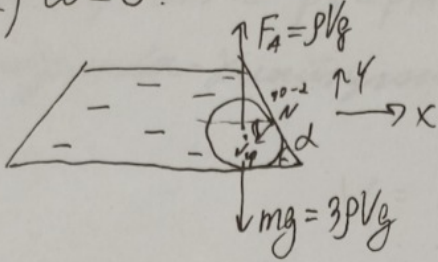 F_A = ρVg
90-α
N
Y
α
X
mg = 3ρVg